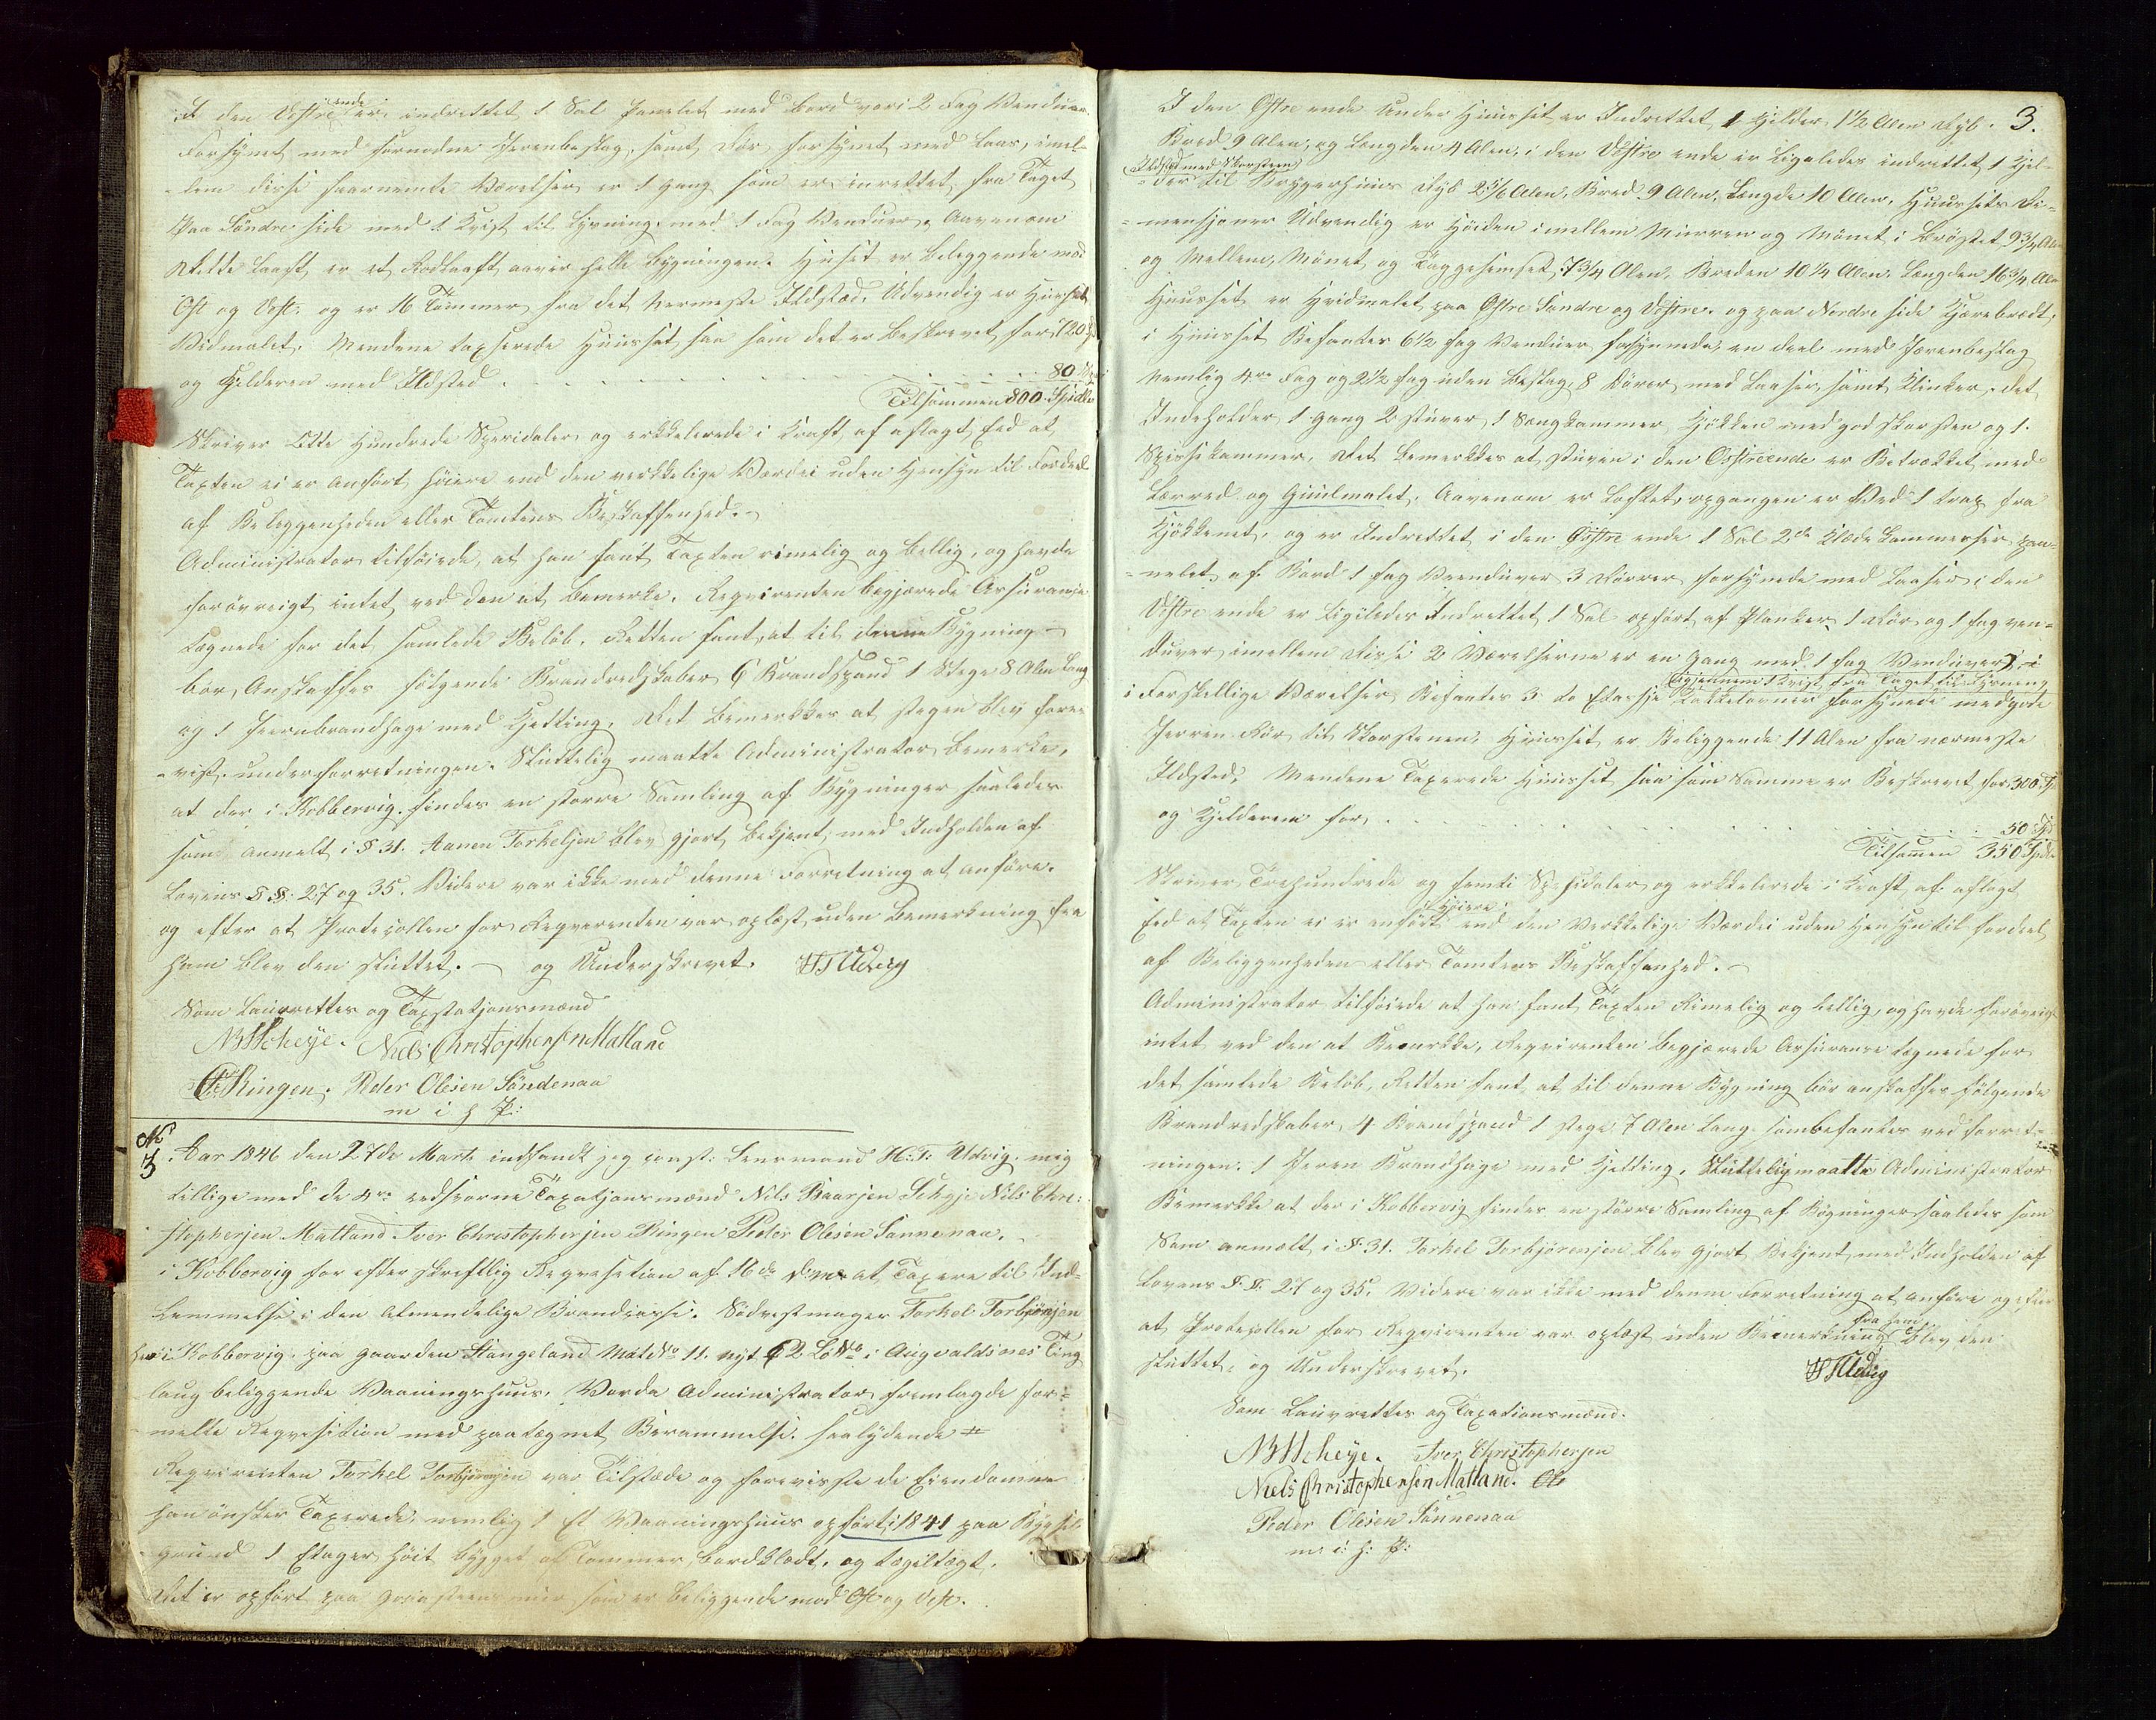 I den Vestre ende er indrettet 1 Sal Panelet med Bord vori 2 Fag Venduer
Forsynet med fornødne Jerenbeslag, samt Dør forsynet med Laas, imel-
lem disse fornemte Værelser er 1 gang som er inrettet fra Taget
Paa Søndre side med 1 Kvist til Lysning med 1 Fag Venduer, Aavenom
dette Laaft er et Rodlaaft aaver helle bygningen. Huset er beleggende mod
Ost og Vest. og er 16 Tommer fra det nermeste Ildsted. Udvendig er Huuset
Vidmalet. Mendene taxserede Huuset saa som det er beskrevet for 720 Sp
og Kjelderen med Ildsted . . . . . . . . . 80
Tilsammen 800 Spidlr
Skriver Otte Hundrede Speridaler og erkkelerede i Kraft af aflagt Eed at
Taxten ei er anført høiere end den verkkelige Vordei uden Hensyn til Fordeel
af Beleggenheden eller Tomtens Beskaffenhed.
Administrator tilføiede, at han fant Taxten rimelig og billig, og havde
forøvreigt intet ved den at bemerke. Reqvirenten begjærede Assuranse
tegnede for det samlede Beløb. Retten fant at til denne Bygning
bør Anskaffes følgende Brandredskaber 6 Brandspand 1 Stege 8 Alen Lang
og 1 Jeernbrandhage med Kjetting. Det bemerkkes at stegen blev fore-
vist under forretningen. Sluttelig maatte Administrator bemerke,
at der i Kobbervig findes en større Samling af Bygninger saaledes
som anmelt i § 31. Aanen Torkelsen blev gjort bekjent med Indholden af
Lovens §§. 27 og 35. Videre var ikke med denne Forretning at anføre.
og efter at Protocollen for Reqverenten var oplæst uden Bemerkning fra
ham blev den sluttet. og Underskrevet. HTUdvig
Som Laurettes og Taxstatjonsmænd
NBScheye. Niels ChristophersenMatland
Ringen. Peder Olesen Søndenaa
m i h P:
No 3. Aar 1846 den 27de Marts indfandt jeg const: Lensmand H: T: Udvig mig
tillige med de 4re eedsvorne Taxatjonsmænd Nils Baarsen Schyje Nils Chri-
stophersen Matland Iver Christophersen Ringen Peder Olesen Sannenaa.
i Kobbervig for efter skreftlig Reqvesetion af 16de dms at Taxere til Ind-
lemmelse i den Almendelige Brandcasse. Sødvestmager Torkel Torbjørnsen
her i Kobbervig. paa Gaarden Stangeland Mat No 11. nyt 62 Lb No i Augvaldsnes Ting
laug beliggende Vaaningshuus. Vorda Administrator fremlagde for-
melle Reqvesition med paategnet Berammelse. saalydende #
Reqvirenten Torkel Torbjørnsen var Tilstæde og foreviste de Eiendomme
han ønsker Taxerede, nemlig 1 st Vaaningshuus opført i 1841 paa Bygsel
grund 1 Etager høit bygget af Tømmer, bordklædt, og tegeltægt.
Det er opført paa graasteens mur som er beliggende mod Ost og Vest.
3.
I den Østre ende Under Huuset er Indrettet 1 Kjelder 1 1/2 Alen dyb.
Bred 9 Alen, og Længden 4 Alen, i den Vestre ende er Ligeledes indrettet 1 Kjel-
Ildsted med Skorsteen
der til Bryggerhuus dyb 2 5/6 Alen, Bred 9 Alen, Længde 10 Alen, Huusets Di-
mensjoner Udvendig er Høiden imellem Murren og Mønet i Brøstet 9 3/4 Alen
og Mellem Mønet og Taggesemset 7 3/4 Alen, Breden 10 1/4 Alen. Længden 16 3/4 Alen
Huuset er Hvidmalet paa Østre Søndre og Vestre. og paa Nordre side Tjærebredt.
i Huuset Befantes 6 1/2 fag Venduer forsynnede en deel med Jærenbeslag
nemlig 4re Fag og 2 1/2 fag uden Beslag, 8 Dører med Laaser, samt Klinker. det
Indeholder 1 gang 2 stuver 1 Sengkammer Kjøkken med god skorsten og 1
Spisekammer. Det bemerkkes at stuven i den Østreende er Betrækket med
Lærred og Guulmalet. Aavenom er Loftet, opgangen er Ved 1 trap fra
Kjøkkenet, og er Indrettet i den Østre ende 1 Sal 2de Klæde kammerser pan-
nelet af Bord 1 fag Venduer 3 Dørrer forsynede med Laaser i den
Vestre ende er Ligeledes Indrettet 1 Sal opført af Planker, 1 Dør og 1 fag ven-
duer imellem disse 2 Værelserne er en gang med 1 fag Venduer
igjennem 1 Kvist fra Taget til Lysning
i Forskellige Værelser Befantes 3 to Etassje Kakkelovner forsynede med gode
Jerren Rør til Skorstenen. Huuset er Beliggende 11 Alen fra nærmeste
Ildsted. Mendene Taxerede Huuset saa som Samme er Beskrevet for 300 Sp
og Kjelderen for, . . . . . . . . . 50 Sp
Tilsamen 350 Spdlr
Skriver Trehundrede og femti Spesidaler og erkkelerede i Kraft af aflagt
høiere
Eed at Taxten ei er anført end den Verkkelige Værdei uden Hensyn til fordeel
af Beliggenheden eller Tomtens Beskaffenhed.
Administrator tilføiede at han fant Taxten Rimelig og billig, og havde forøvrigt
intet ved den at Bemerkke, Reqvirenten begjærede Assuranse tegnede for
det samlede Beløb, Retten fant at til denne Bygning bør anskaffes følgende
Brandredskaber, 4 Brandspand 1 stege 7 Alen Lang sombefantes ved forret-
ningen. 1 Jeren Brandhage med Kjetting, Sluttelig maatte Administrator
Bemerkke at der i Kobbervig findes en større Samling af Bygninger saaledes som
Som anmelt i §. 31. Torkel Torbjørensen blev gjort Bekjent med Indholden af
Lovens §.§. 27 og 35. Videre var ikke med denne Forretning at anføre og efter
fra ham
at Protocollen for Reqvirenten var oplæst uden Bemerkning blev den
sluttet. og Underskrevet. HTUdvig
Som Lauvrettes og Taxationsmænd.
NBScheye. Iver Christophersen
Niels ChristophersenMatland.
Peder Olesen Sønnenaa
m: i: h: P: